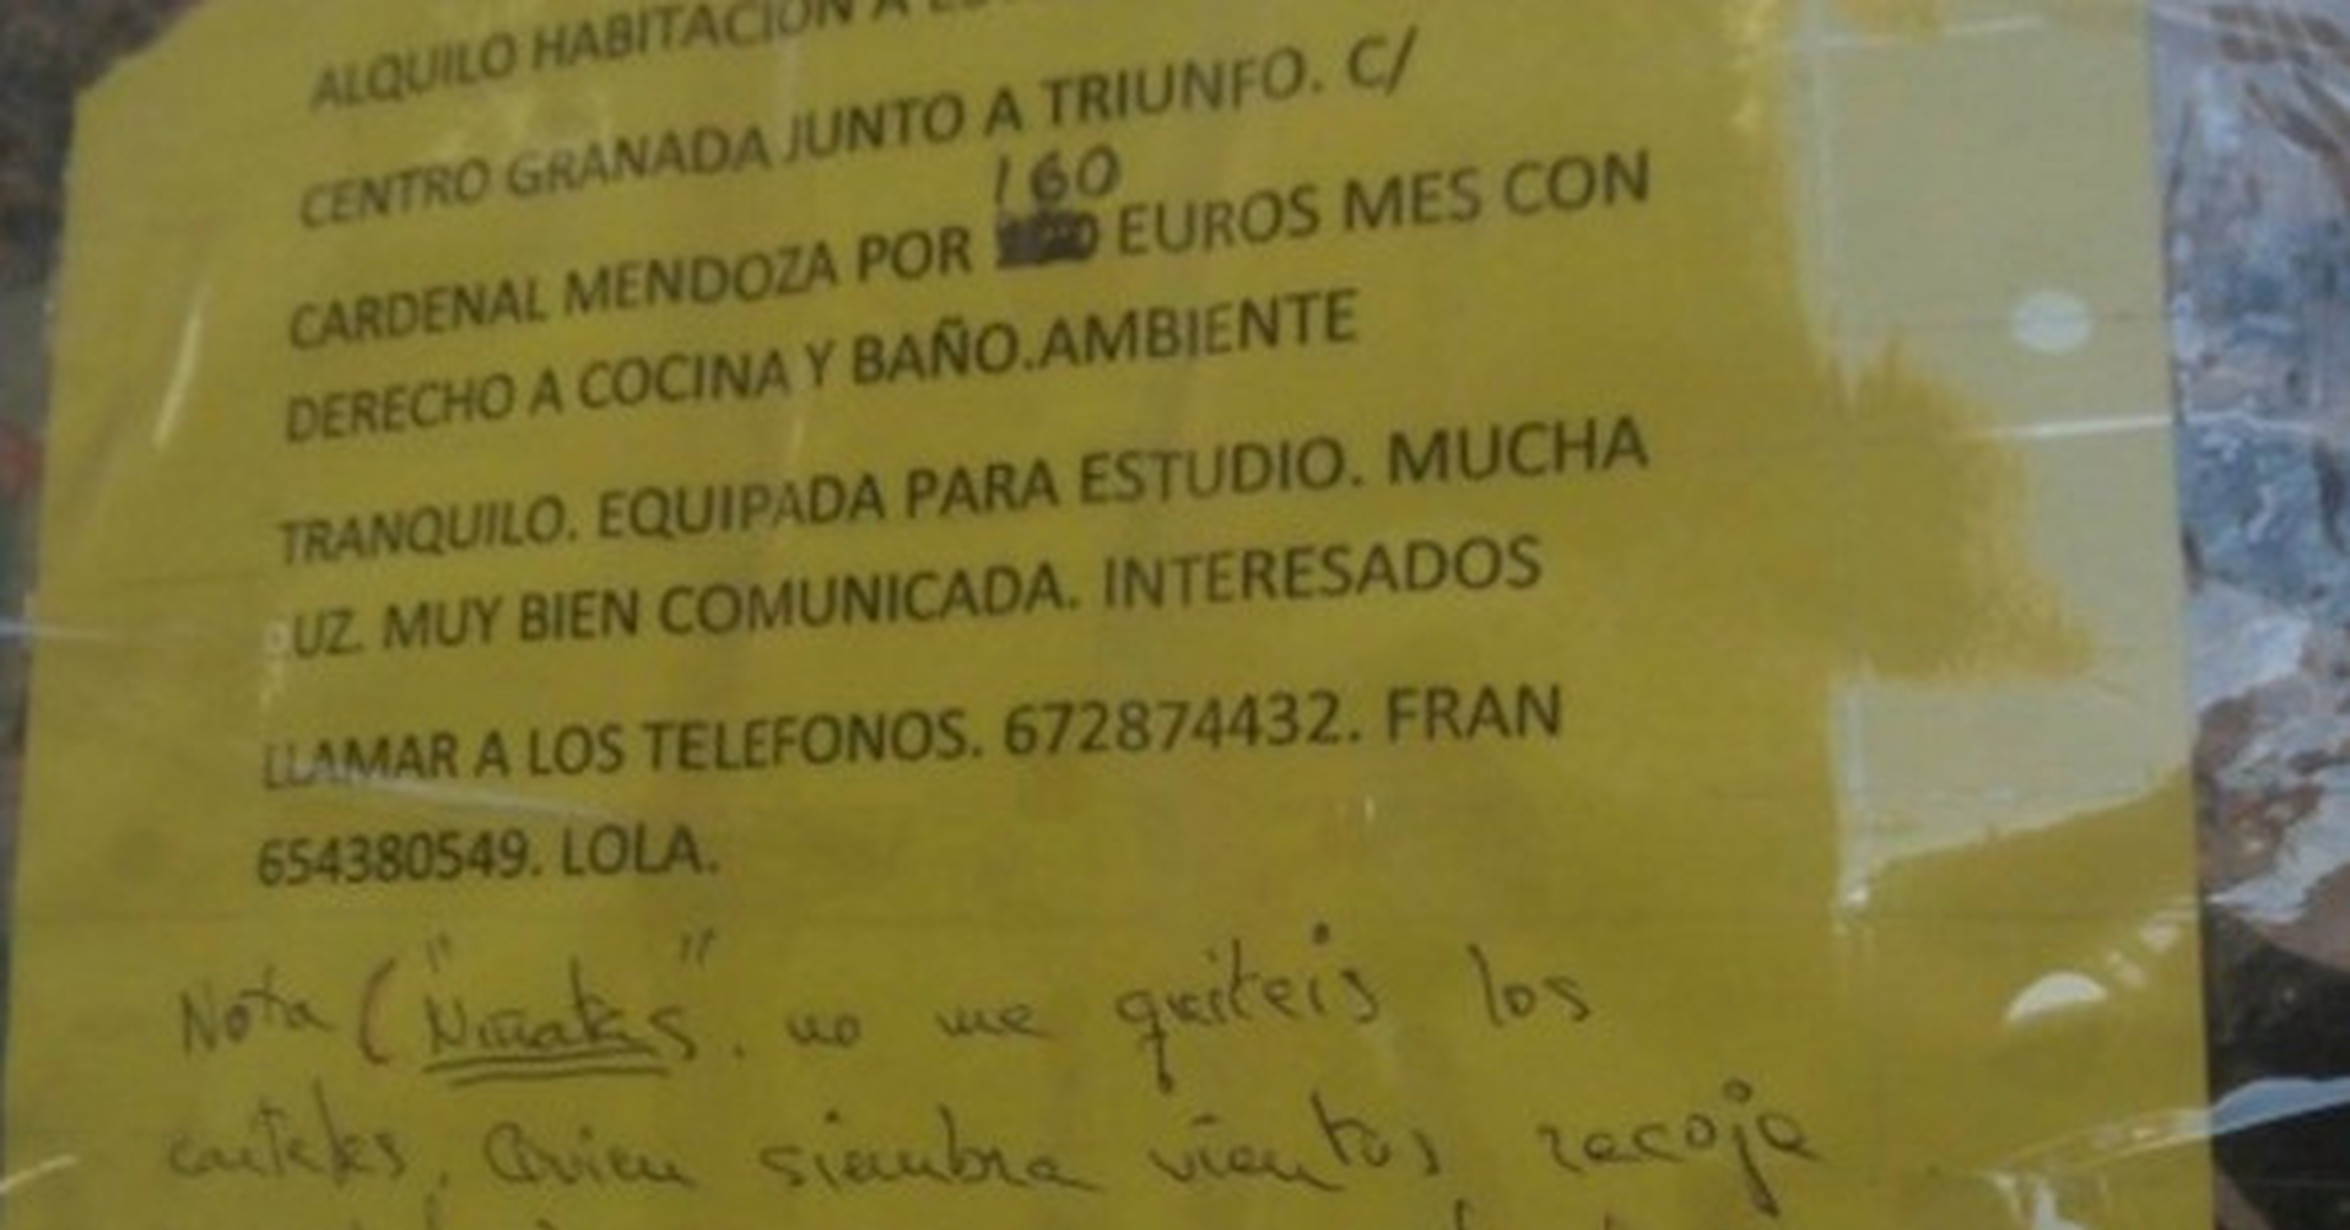 ALQUILO HABITACIÓN A
CENTRO GRANADA JUNTO A TRIUNFO. C/
160
CARDENAL MENDOZA POR EUROS MES CON
DERECHO A COCINA Y BAÑO.AMBIENTE
TRANQUILO. EQUIPADA PARA ESTUDIO. MUCHA
LUZ. MUY BIEN COMUNICADA. INTERESADOS
LLAMAR A LOS TELEFONOS. 672874432. FRAN
654380549. LOLA.
Nota ("Niñatos". no me quiteis los
carteles. Quien siembra vientos recoje